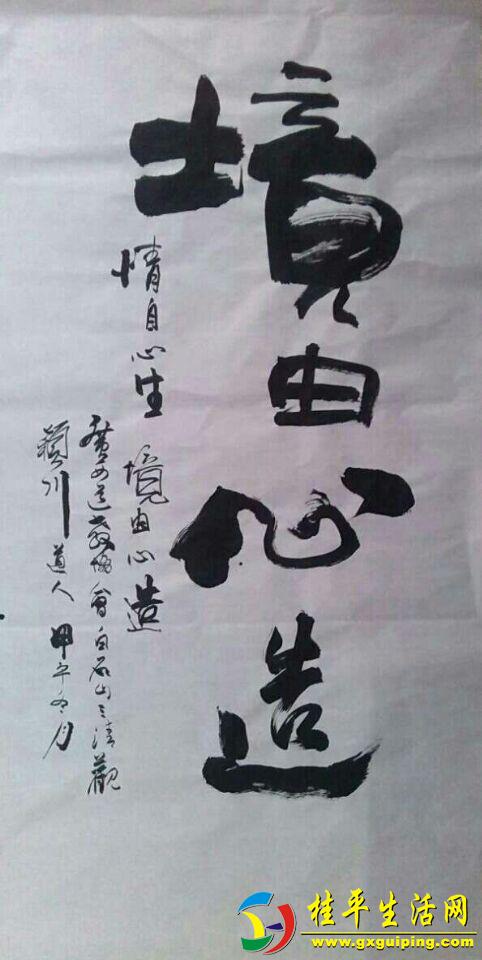 境由心造
情自心生 境由心造
廣西道教協會白石山三清觀
穎川道人 甲午冬月
桂平生活网
www.gxguiping.com